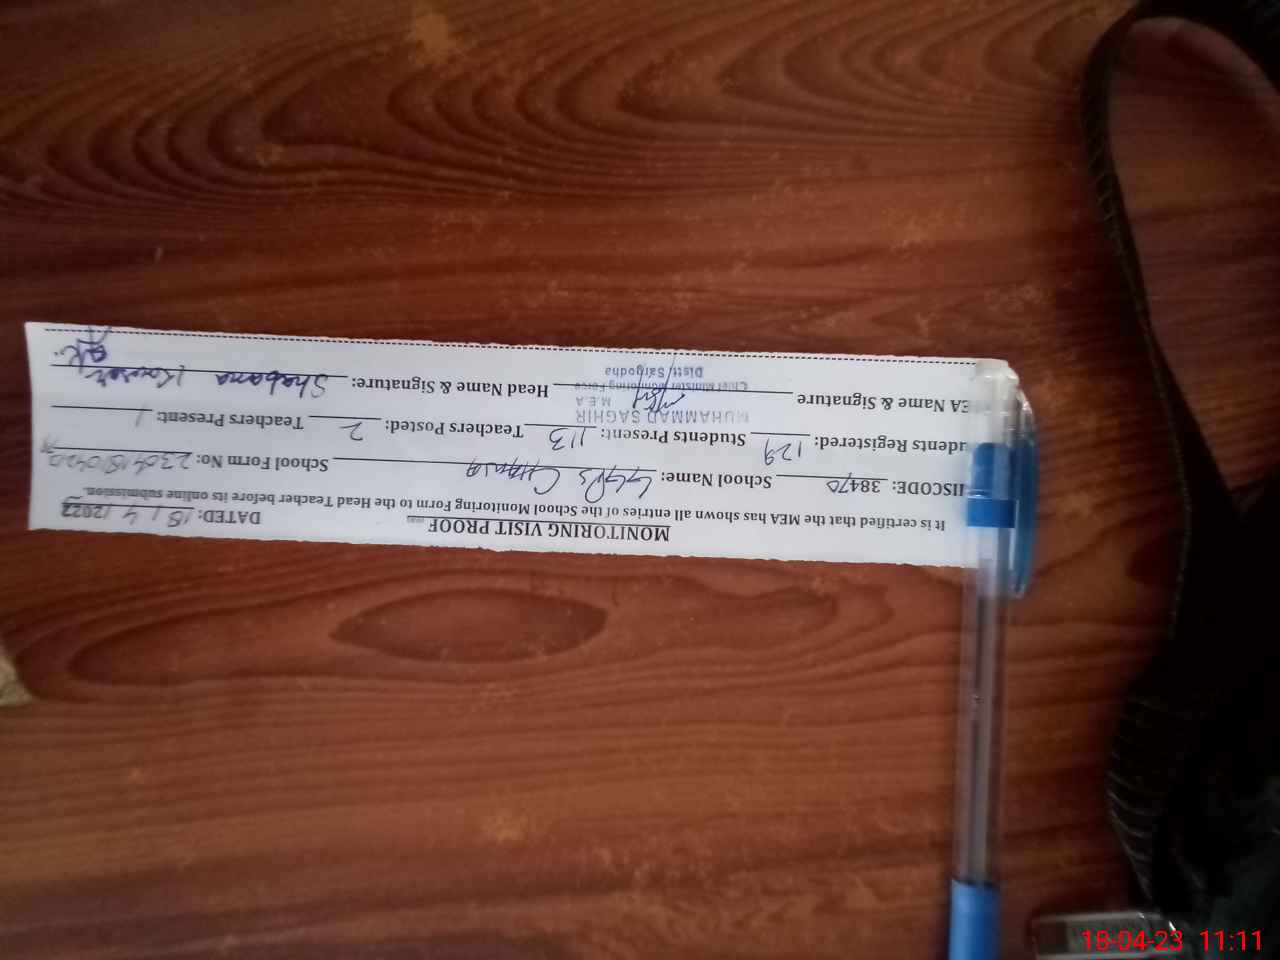 MONITORING VISIT PROOF
DATED: 18/4/2023
It is certified that the MEA has shown all entries of the School Monitoring Form to the Head Teacher before its online submission.
IISCODE: 38470 School Name: GGPS School Form No:
udents Registered: 129 Students Present: 113 Teachers Posted: 2 Teachers Present: 1
MUHAMMAD SAGHIR
M.E.A
EA Name & Signature Head Name & Signature: Shabana Kousar
Chief Minister Monitoring Force
Distt: Sargodha
18-04-23 11:11